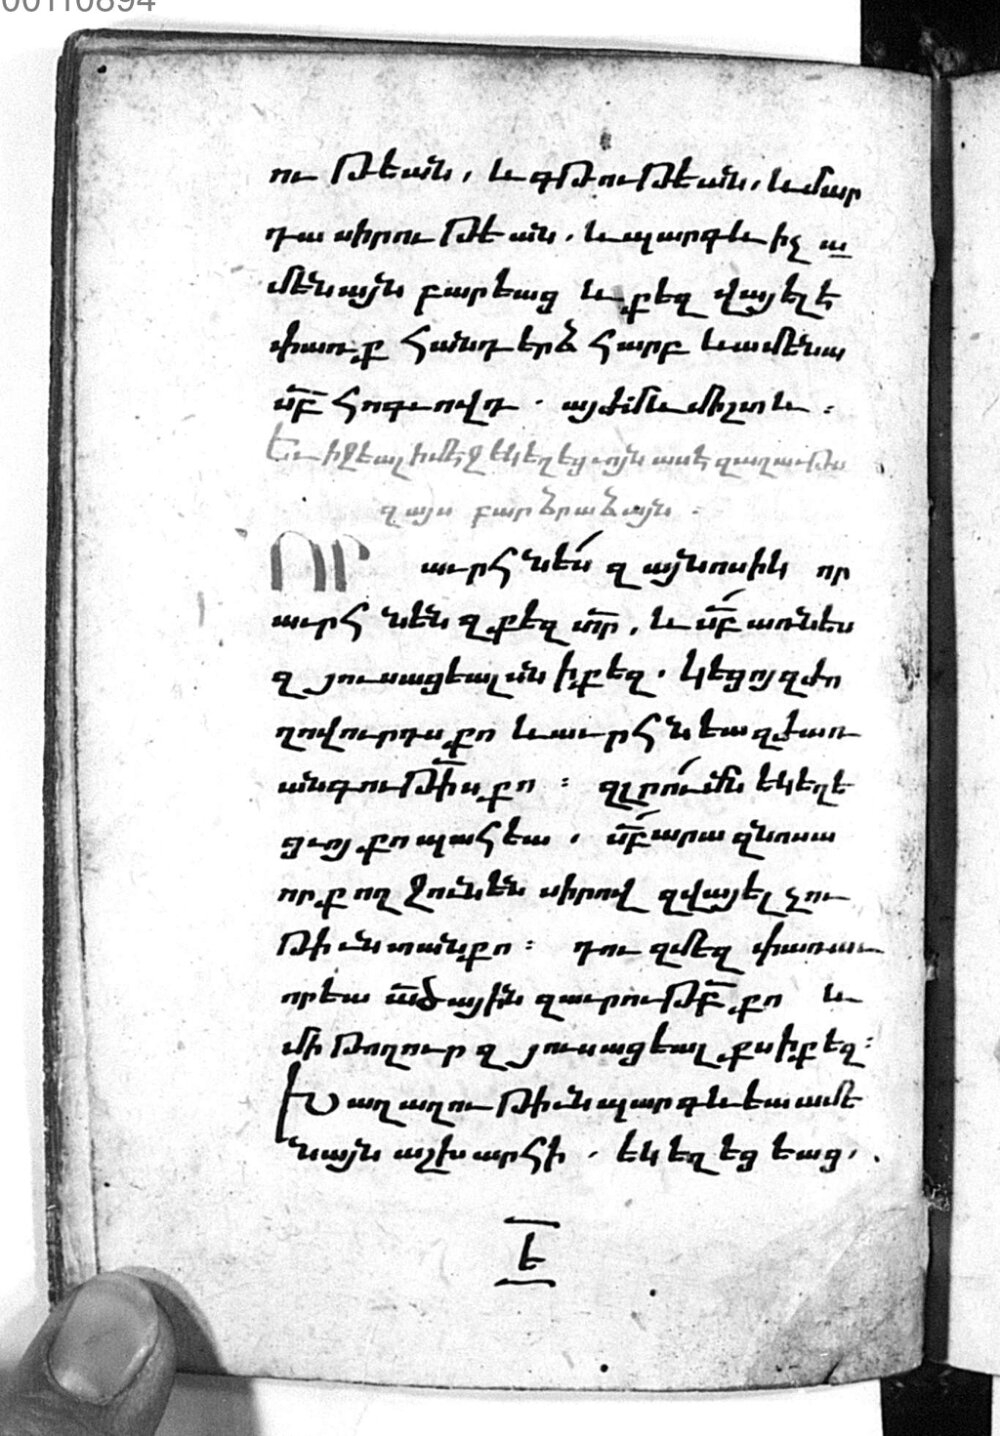 00110894
ութեան, և գթութեան, և մար
դասիրութեան. և պարգևիչ ա
մենայն բարեաց և քեզ վայելէ
փառք հանդերձ հարբ և ամենա
սբ հոգւովդ. այժմ և միշտ և :
Եւ իջեալ ի մէջ եկեղեցւոյն ասէ զաղաւթս
զայս բարձրաձայն.
ՈՐ աւրհնես զայնոսիկ որ
աւրհնեն զքեզ տր, և սբ առնես
զյուսացեալսն ի քեզ. կեցո զժո
ղովուրդս քո և աւրհնեա զժառ
անգութիս քո : զլրումն եկեղե
ցւոյ քո պահեա, սբ արա զնոսա
որք ողջունեն սիրով զվայելչու
թիւն տան քո : դու զմեզ փառաւ
որեա ածային զաւրութբ քո և
մի թողուր զյուսացեալքս ի քեզ :
Խաղաղութիւն պարգևեա ամե
նայն աշխարհի. եկեղեցեաց.
Է